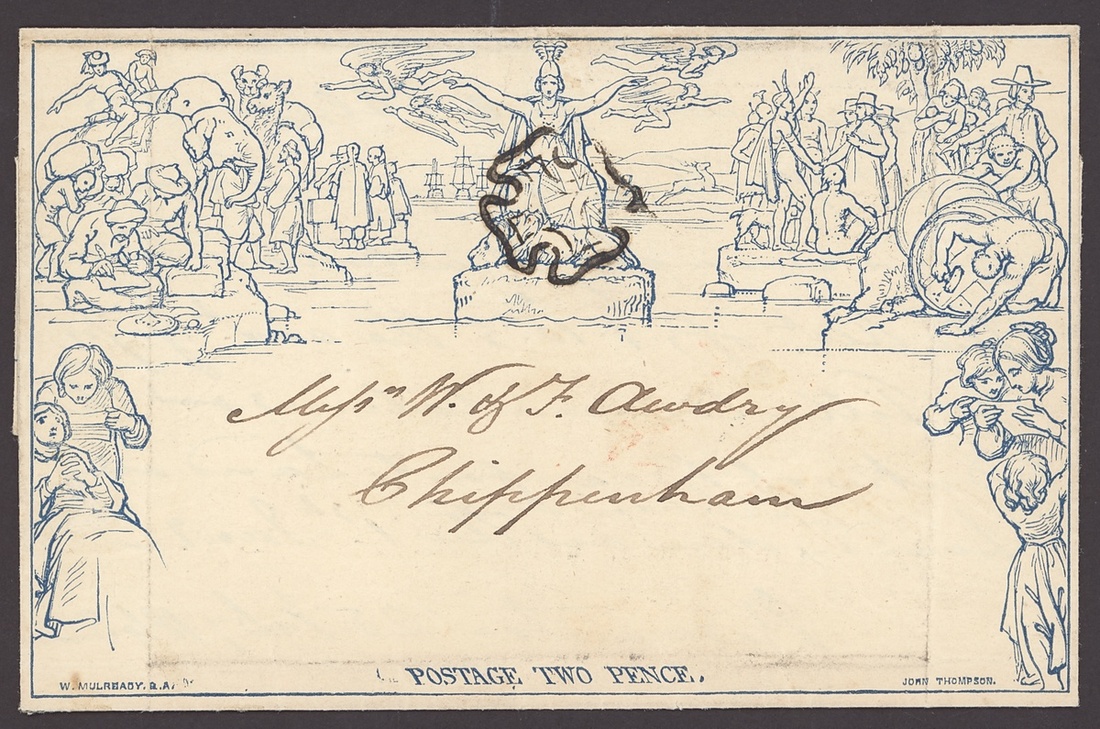 Messrs W. & F. Awdry
Chippenham
POSTAGE TWO PENCE.
W. MULREADY. R.A.
JOHN THOMPSON.